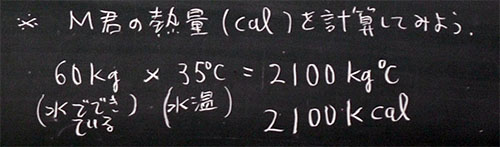 ※ M君の熱量(cal)を計算してみよう.
60kg × 35℃ = 2100kg℃
(水でできている) (水温) 2100kcal